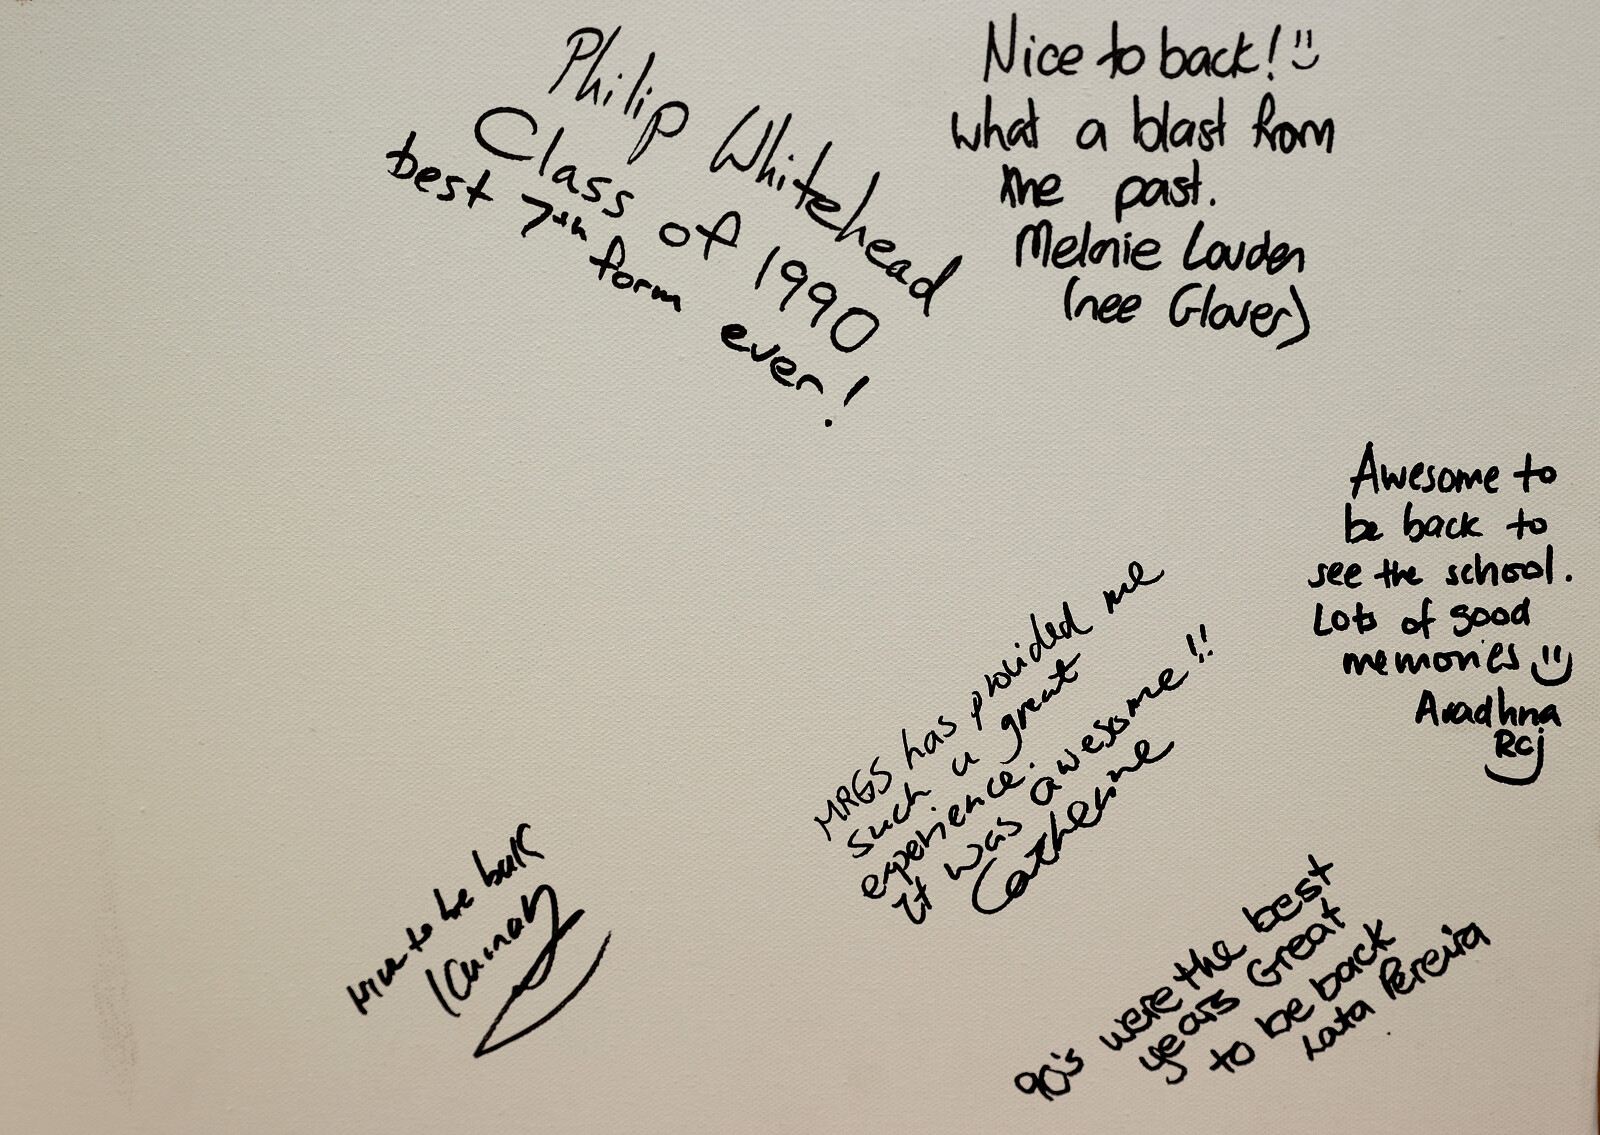 Philip Whitehead
Class of 1990
best 7th form ever!
Nice to back!
what a blast from
the past.
Melanie Louden
(nee Glover)
Awesome to
be back to
see the school.
Lots of good
memories
Aradhna
Raj
MRGS has provided me
such a great
experience.
it was awesome!!
Catherine
Nice to be back
90's were the best
years Great
to be back
Lata Pereira